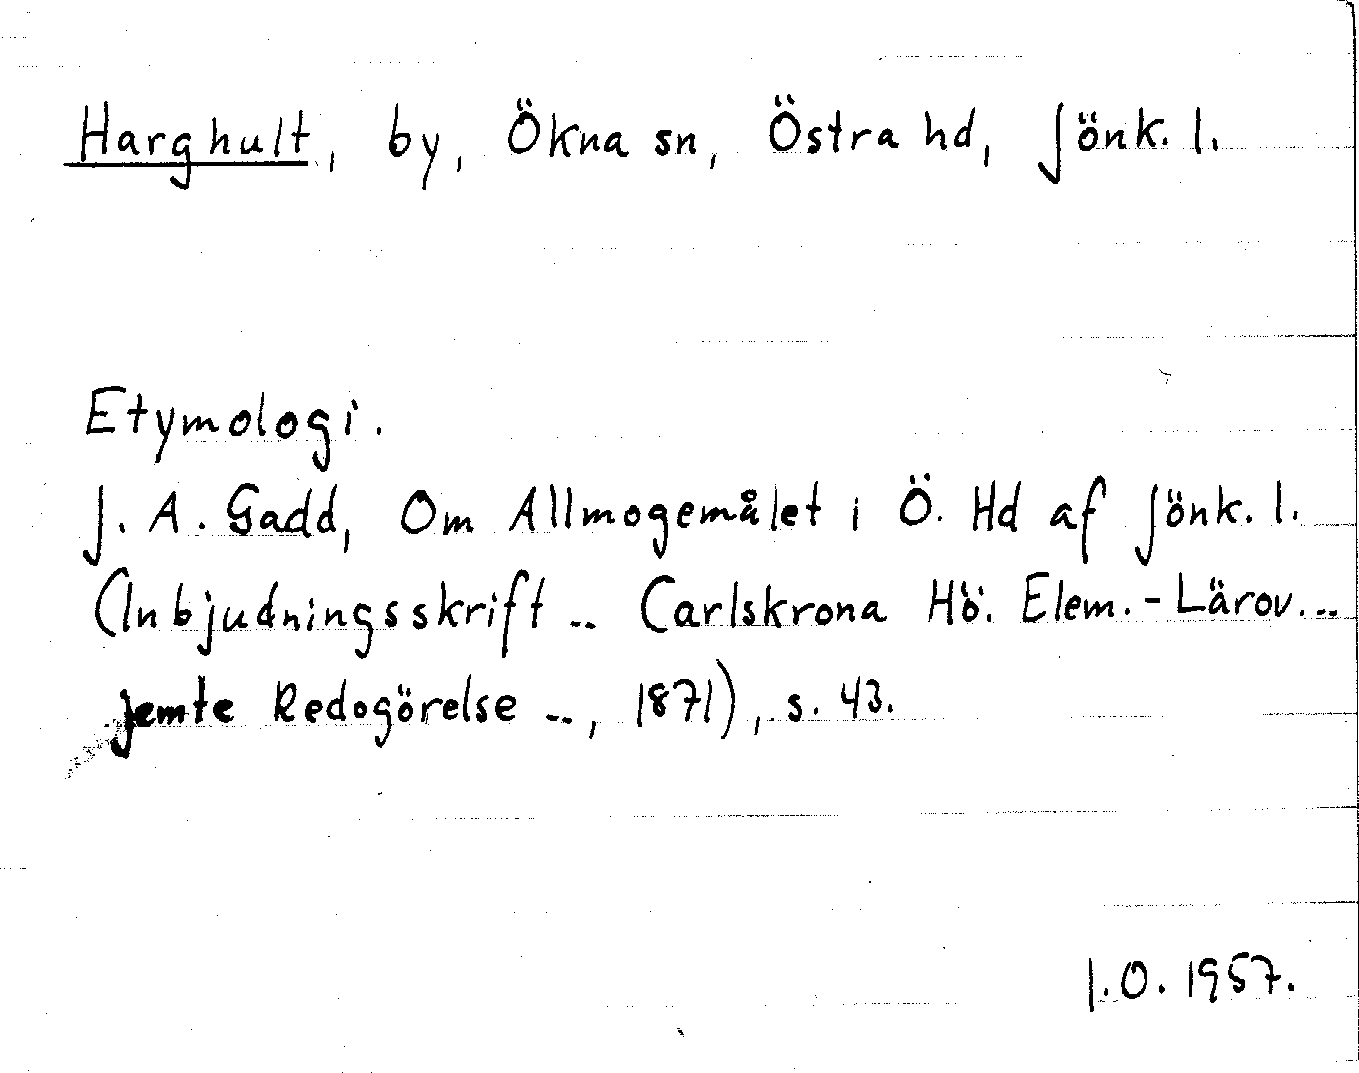 Harghult, by, Ökna sn, Östra hd, Jönk. l.
Etymologi.
J. A. Gadd, Om Allmogemålet i Ö. Hd af Jönk. l.
(Inbjudningsskrift .. Carlskrona Hö. Elem.-Lärov...
jemte Redogörelse .., 1871), s. 43.
I.O. 1957.